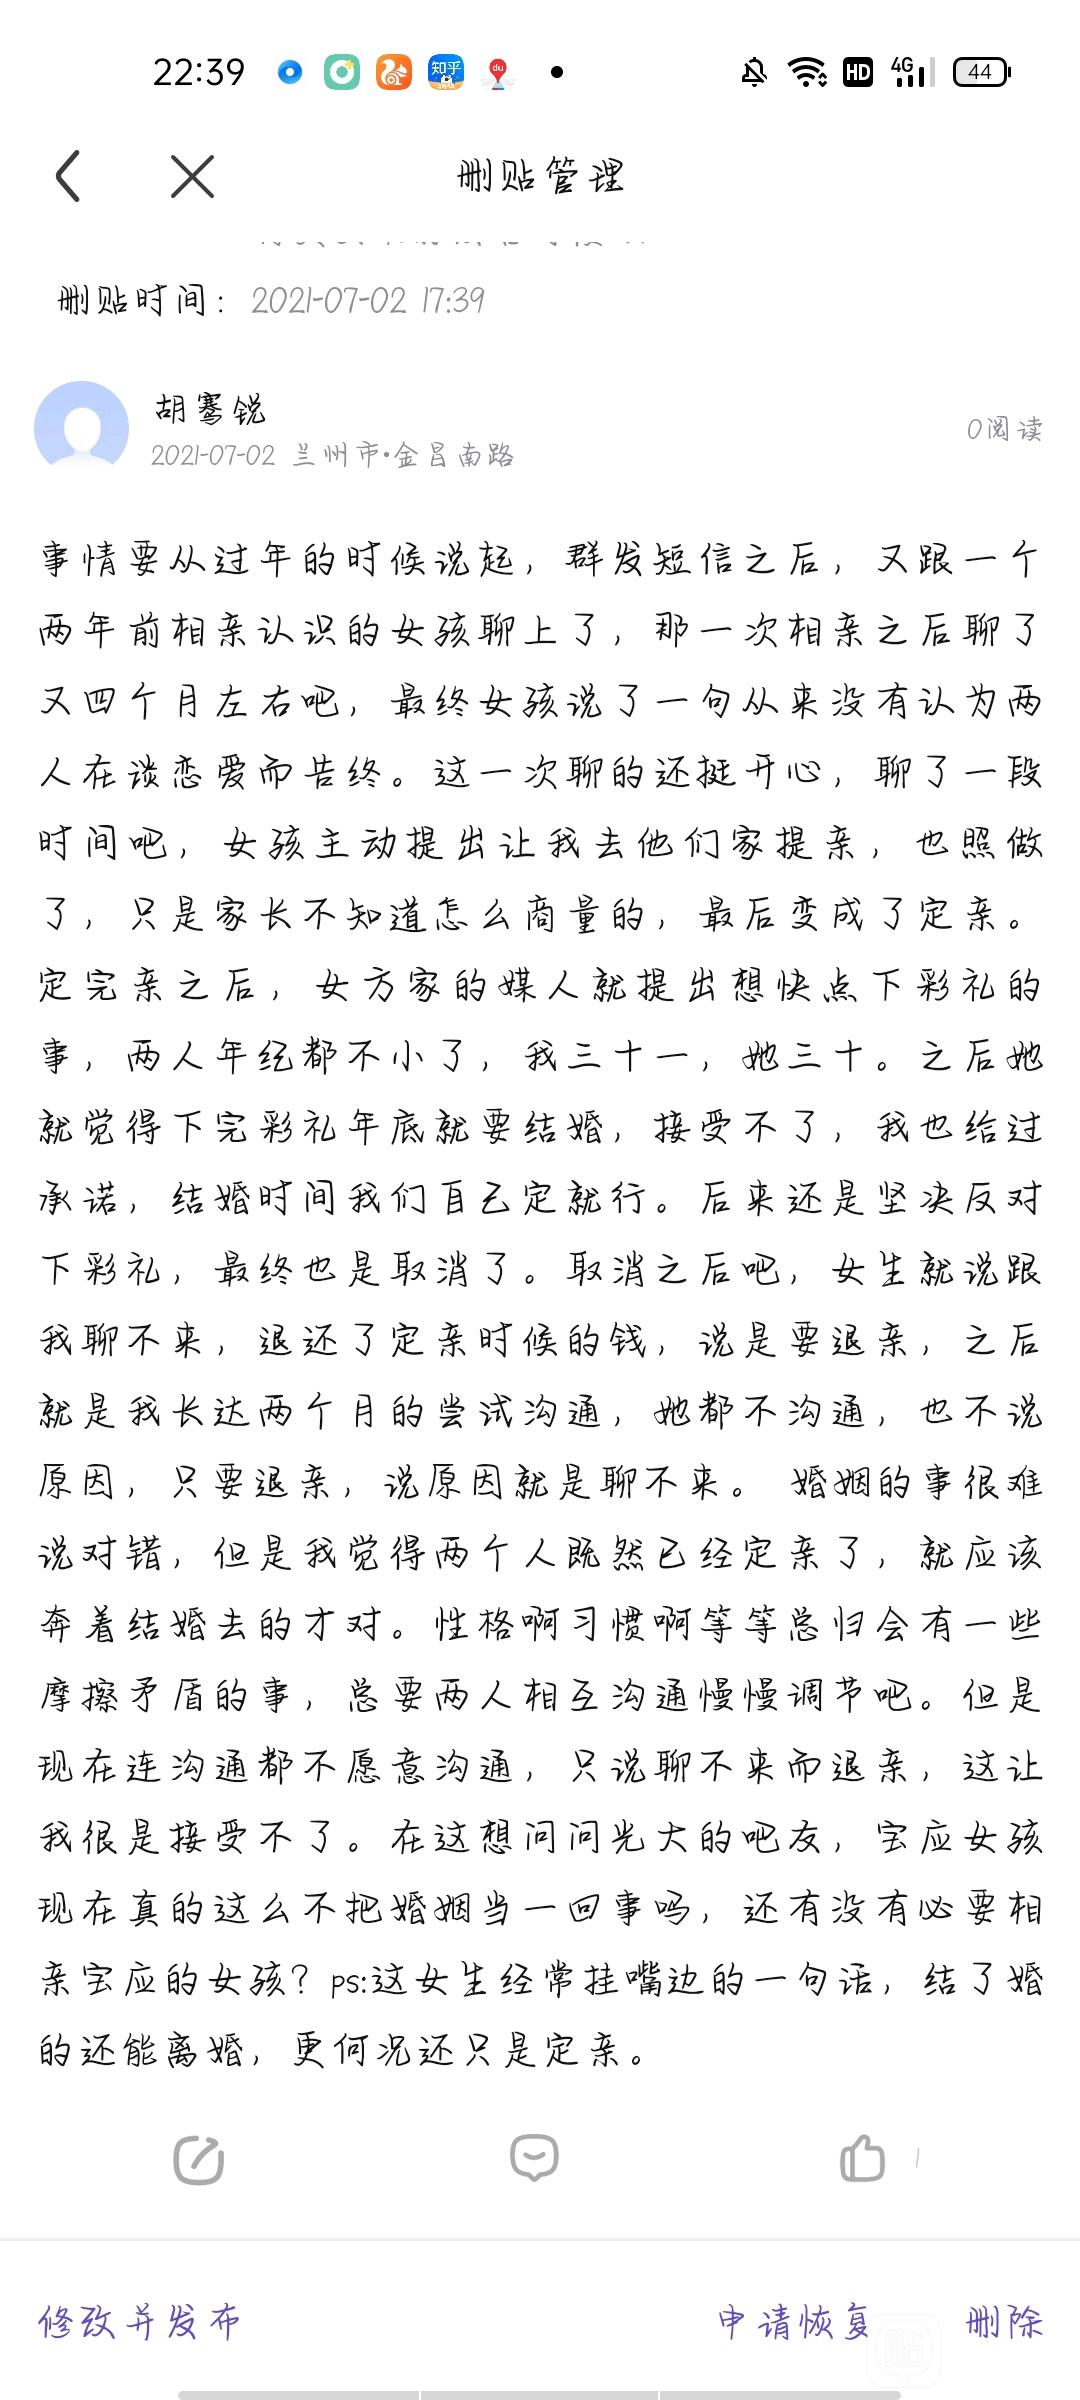 22:39
知乎
du
HD
4G
44
删贴管理
删贴时间：2021-07-02 17:39
胡骞锐
0阅读
2021-07-02 兰州市•金昌南路
事情要从过年的时候说起，群发短信之后，又跟一个
两年前相亲认识的女孩聊上了，那一次相亲之后聊了
又四个月左右吧，最终女孩说了一句从来没有认为两
人在谈恋爱而告终。这一次聊的还挺开心，聊了一段
时间吧，女孩主动提出让我去他们家提亲，也照做
了，只是家长不知道怎么商量的，最后变成了定亲。
定完亲之后，女方家的媒人就提出想快点下彩礼的
事，两人年纪都不小了，我三十一，她三十。之后她
就觉得下完彩礼年底就要结婚，接受不了，我也给过
承诺，结婚时间我们自己定就行。后来还是坚决反对
下彩礼，最终也是取消了。取消之后吧，女生就说跟
我聊不来，退还了定亲时候的钱，说是要退亲，之后
就是我长达两个月的尝试沟通，她都不沟通，也不说
原因，只要退亲，说原因就是聊不来。 婚姻的事很难
说对错，但是我觉得两个人既然已经定亲了，就应该
奔着结婚去的才对。性格啊习惯啊等等总归会有一些
摩擦矛盾的事，总要两人相互沟通慢慢调节吧。但是
现在连沟通都不愿意沟通，只说聊不来而退亲，这让
我很是接受不了。在这想问问光大的吧友，宝应女孩
现在真的这么不把婚姻当一回事吗，还有没有必要相
亲宝应的女孩？ps:这女生经常挂嘴边的一句话，结了婚
的还能离婚，更何况还只是定亲。
修改并发布
申请恢复
删除
贴